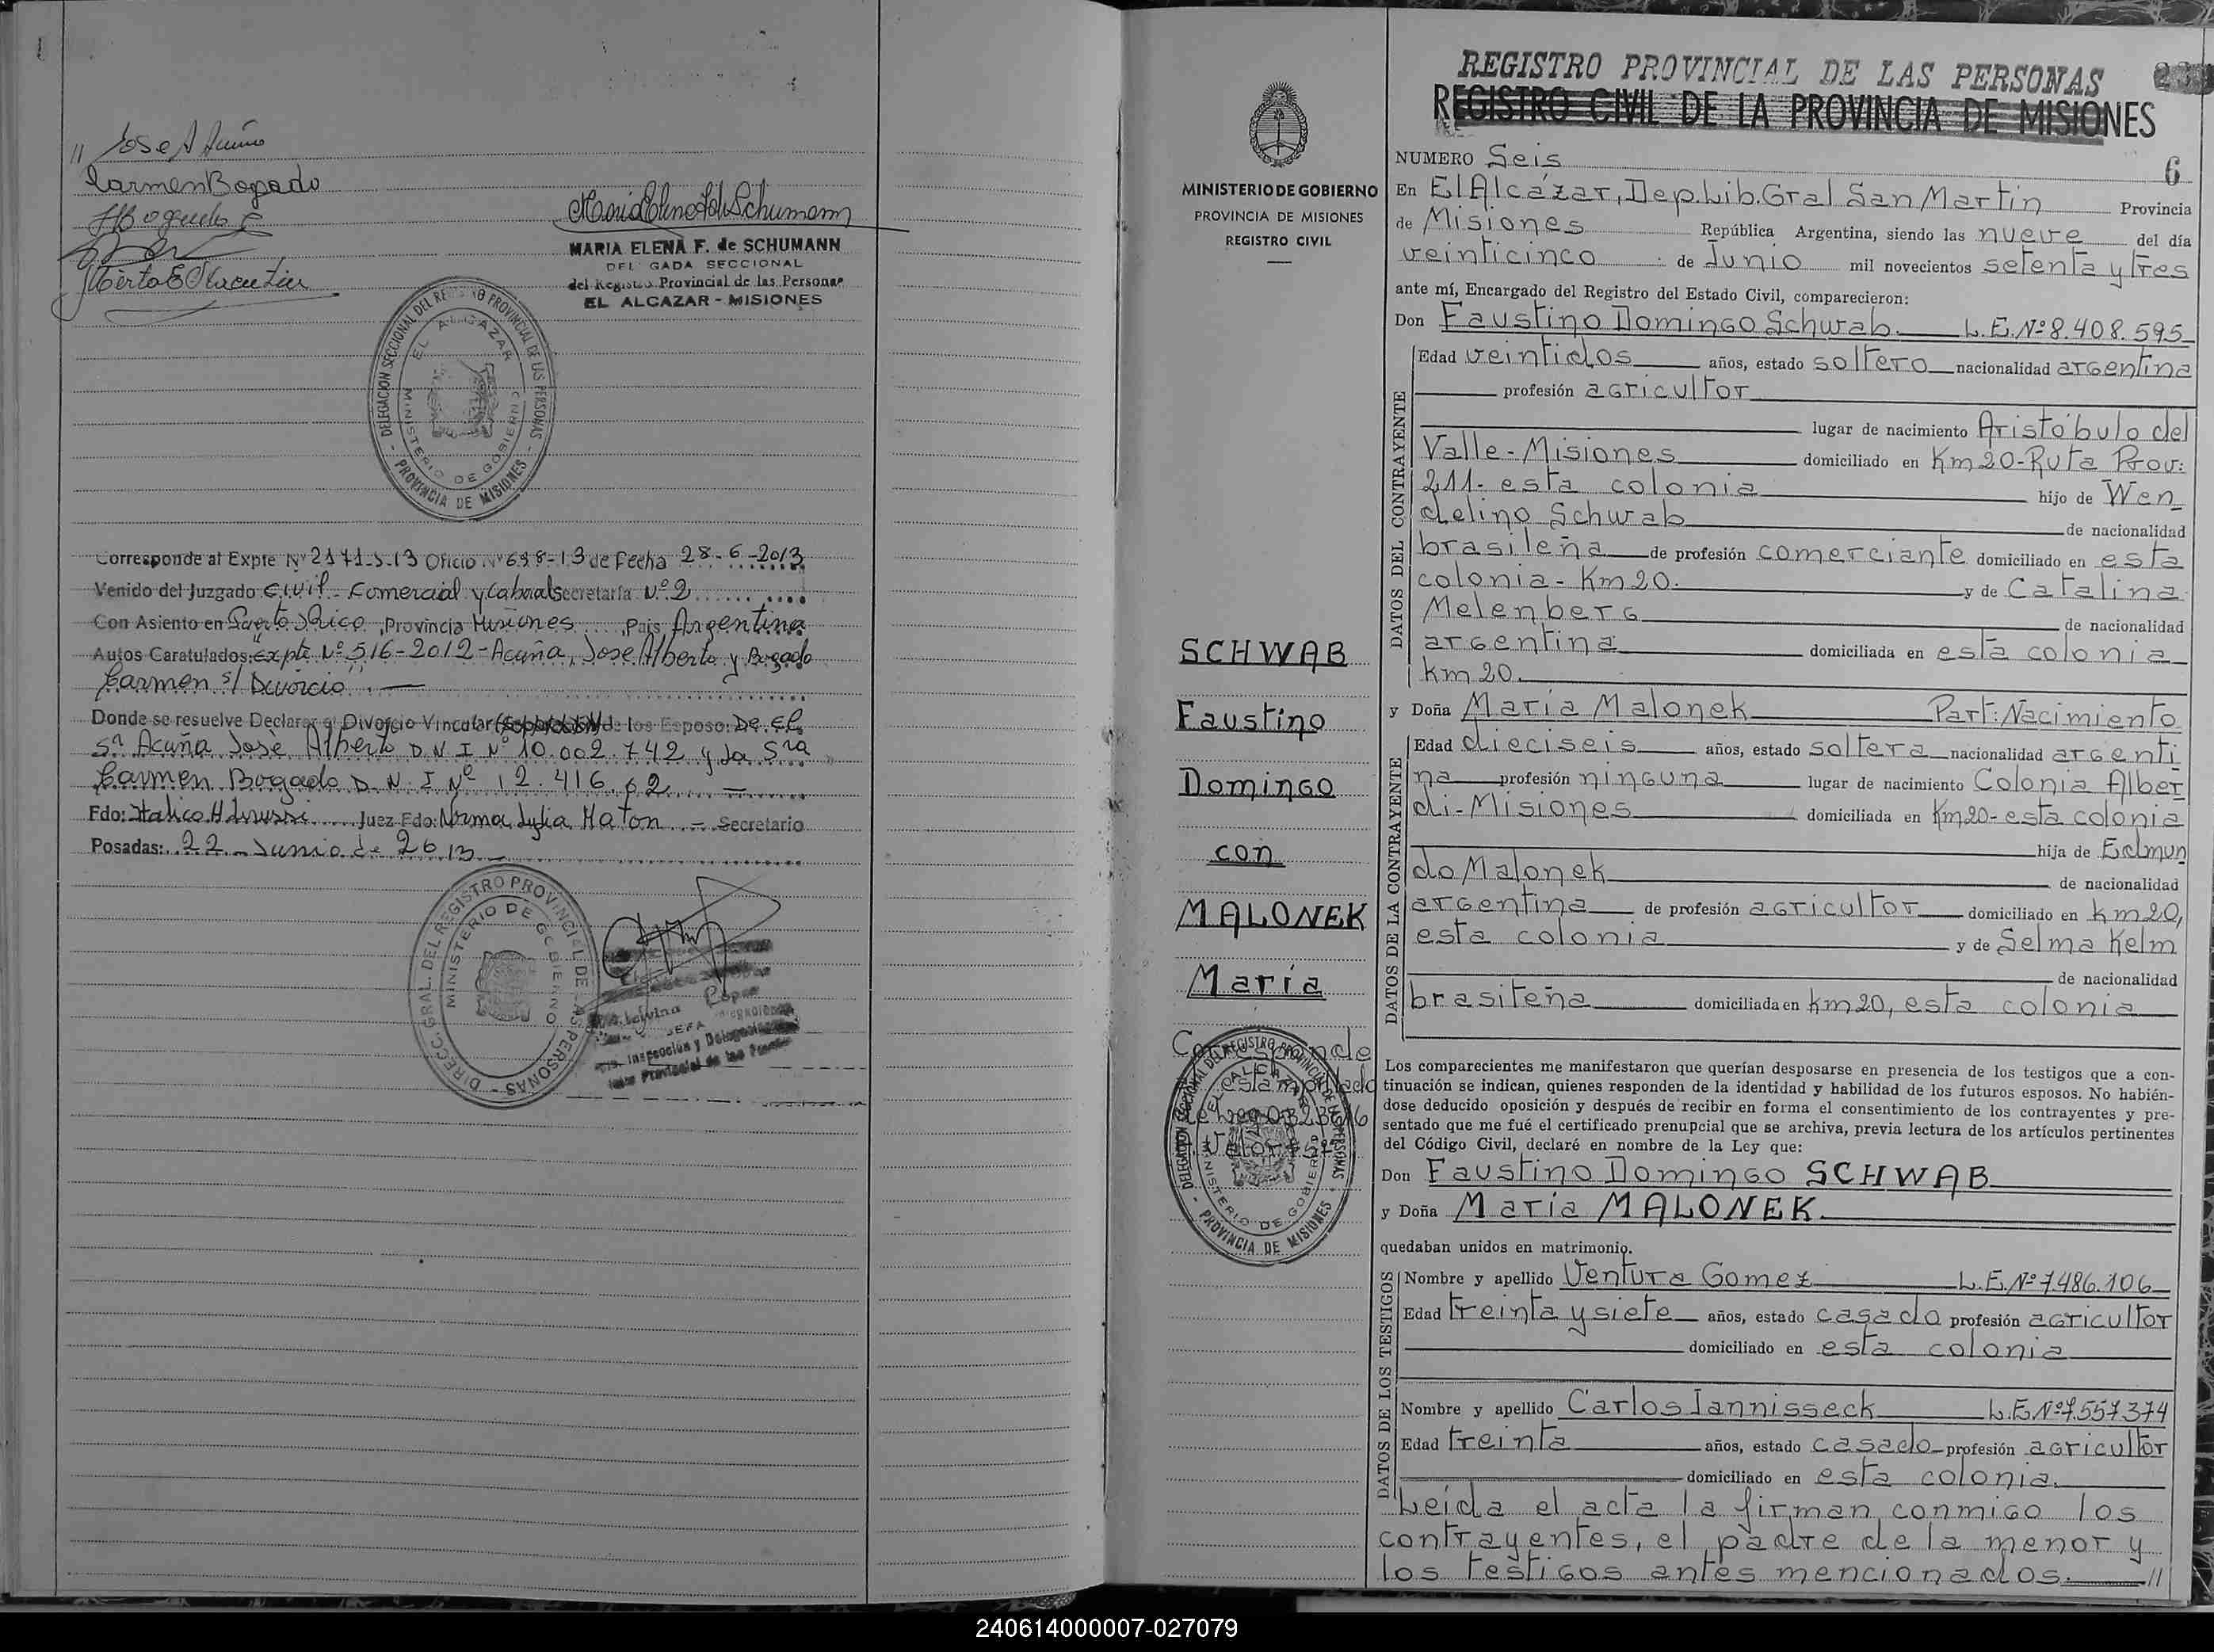 // Jose A Acuña
Carmen Bogado
MARIA ELENA F. de SCHUMANN
DEL GADA SECCIONAL
del Registro Provincial de las Personas
EL ALCAZAR - MISIONES
DELEGACION SECCIONAL DEL REGISTRO PROVINCIAL DE LAS PERSONAS - PROVINCIA DE MISIONES -
EL ALCAZAR
MINISTERIO DE GOBIERNO
Corresponde al Expte Nº 2171-S-13 Oficio Nº 698-13 de Fecha 28-6-2013
Venido del Juzgado Civil - Comercial y Laboral Secretaría Nº 2
Con Asiento en Puerto Rico, Provincia Misiones, País Argentina
Autos Caratulados: Expte Nº 516-2012-Acuña, Jose Alberto y Bogado
Carmen s/ Divorcio" . —
Donde se resuelve Declarar el Divorcio Vincular de los Esposo: De el
Sr Acuña José Alberto D N I Nº 10.002.742 y la Sra
Carmen Bogado D. N. I Nº 12.416.62 —
Fdo: Juez Fdo: Norma Lydia — Secretario
Posadas: 22 - Junio de 2013
DIRECC. GRAL. DEL REGISTRO PROVINCIAL DE LAS PERSONAS -
MINISTERIO DE GOBIERNO
JEFA
Inspección y Delegaciones
REGISTRO PROVINCIAL DE LAS PERSONAS
REGISTRO CIVIL DE LA PROVINCIA DE MISIONES
MINISTERIO DE GOBIERNO
PROVINCIA DE MISIONES
REGISTRO CIVIL
SCHWAB
Faustino
Domingo
con
MALONEK
María
Corresponde
estampillado
DELEGACION SECCIONAL DEL REGISTRO PROVINCIAL DE LAS PERSONAS - PROVINCIA DE MISIONES -
EL ALCAZAR
MINISTERIO DE GOBIERNO
NUMERO Seis 6
En El Alcázar, Dep. Lib. Gral San Martín Provincia
de Misiones República Argentina, siendo las nueve del día
veinticinco de Junio mil novecientos setenta y tres
ante mí, Encargado del Registro del Estado Civil, comparecieron:
Don Faustino Domingo Schwab. L. E. Nº 8.408.595
DATOS DEL CONTRAYENTE
Edad veintidos años, estado soltero nacionalidad argentina
profesión agricultor
lugar de nacimiento Aristóbulo del
Valle - Misiones domiciliado en Km 20 - Ruta Prov:
211 - esta colonia hijo de Wen
delino Schwab de nacionalidad
brasileña de profesión comerciante domiciliado en esta
colonia - Km 20. y de Catalina
Melenberg de nacionalidad
argentina domiciliada en esta colonia
km 20.
y Doña María Malonek Part: Nacimiento
DATOS DE LA CONTRAYENTE
Edad dieciseis años, estado soltera nacionalidad argenti
na profesión ninguna lugar de nacimiento Colonia Alber
di - Misiones domiciliada en Km 20 - esta colonia
hija de Edmun
do Malonek de nacionalidad
argentina de profesión agricultor domiciliado en km 20,
esta colonia y de Selma Kelm
de nacionalidad
brasileña domiciliada en km 20, esta colonia
Los comparecientes me manifestaron que querían desposarse en presencia de los testigos que a con-
tinuación se indican, quienes responden de la identidad y habilidad de los futuros esposos. No habién-
dose deducido oposición y después de recibir en forma el consentimiento de los contrayentes y pre-
sentado que me fué el certificado prenupcial que se archiva, previa lectura de los artículos pertinentes
del Código Civil, declaré en nombre de la Ley que:
Don Faustino Domingo SCHWAB
y Doña María MALONEK.
quedaban unidos en matrimonio.
DATOS DE LOS TESTIGOS
Nombre y apellido Ventura Gomez L. E. Nº 7.486.106
Edad treinta y siete años, estado casado profesión agricultor
domiciliado en esta colonia
Nombre y apellido Carlos Iannisseck L. E. Nº 7.557.374
Edad treinta años, estado casado profesión agricultor
domiciliado en esta colonia.
Leída el acta la firman conmigo los
contrayentes, el padre de la menor y
los testigos antes mencionados. //
240614000007-027079